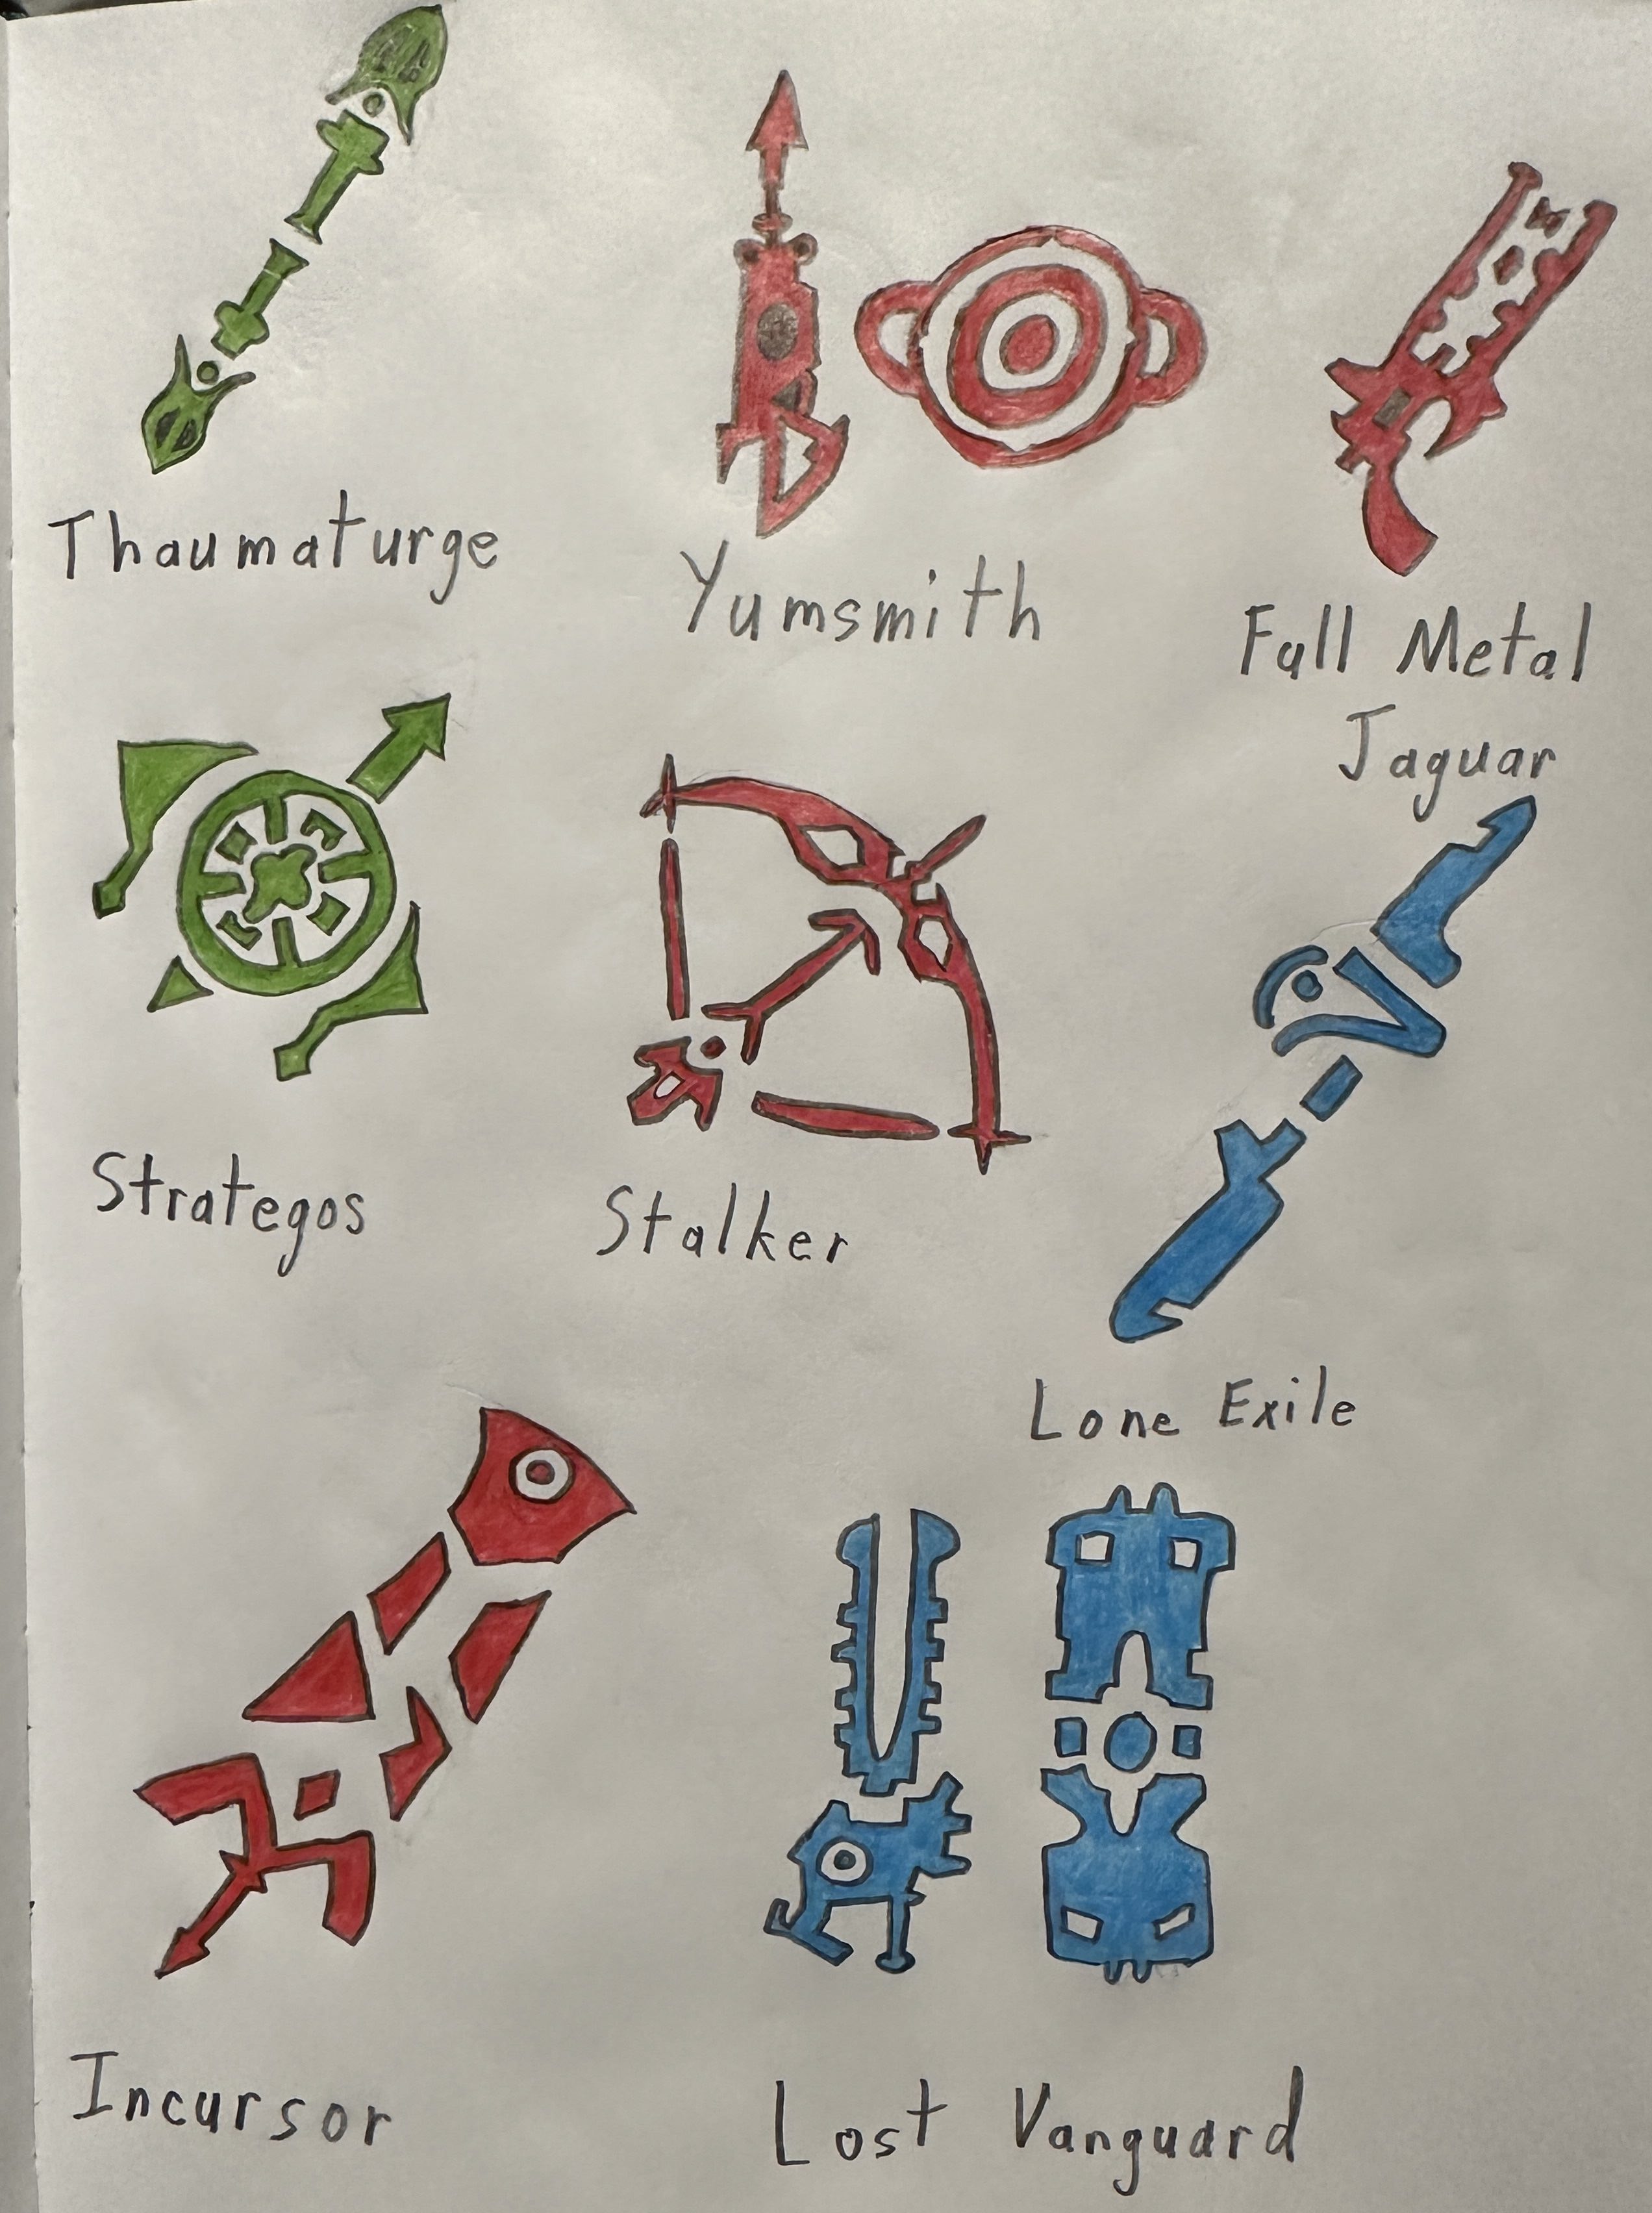 Thaumaturge
Yumsmith
Full Metal
Jaguar
Strategos
Stalker
Lone Exile
Incursor
Lost Vanguard